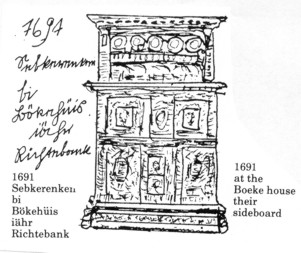 1691
Sebkerenken
bi
Bökehüis
iähr
Richtebank
1691
Sebkerenken
bi
Bökehüis
iähr
Richtebank
1691
at the
Boeke house
their
sideboard